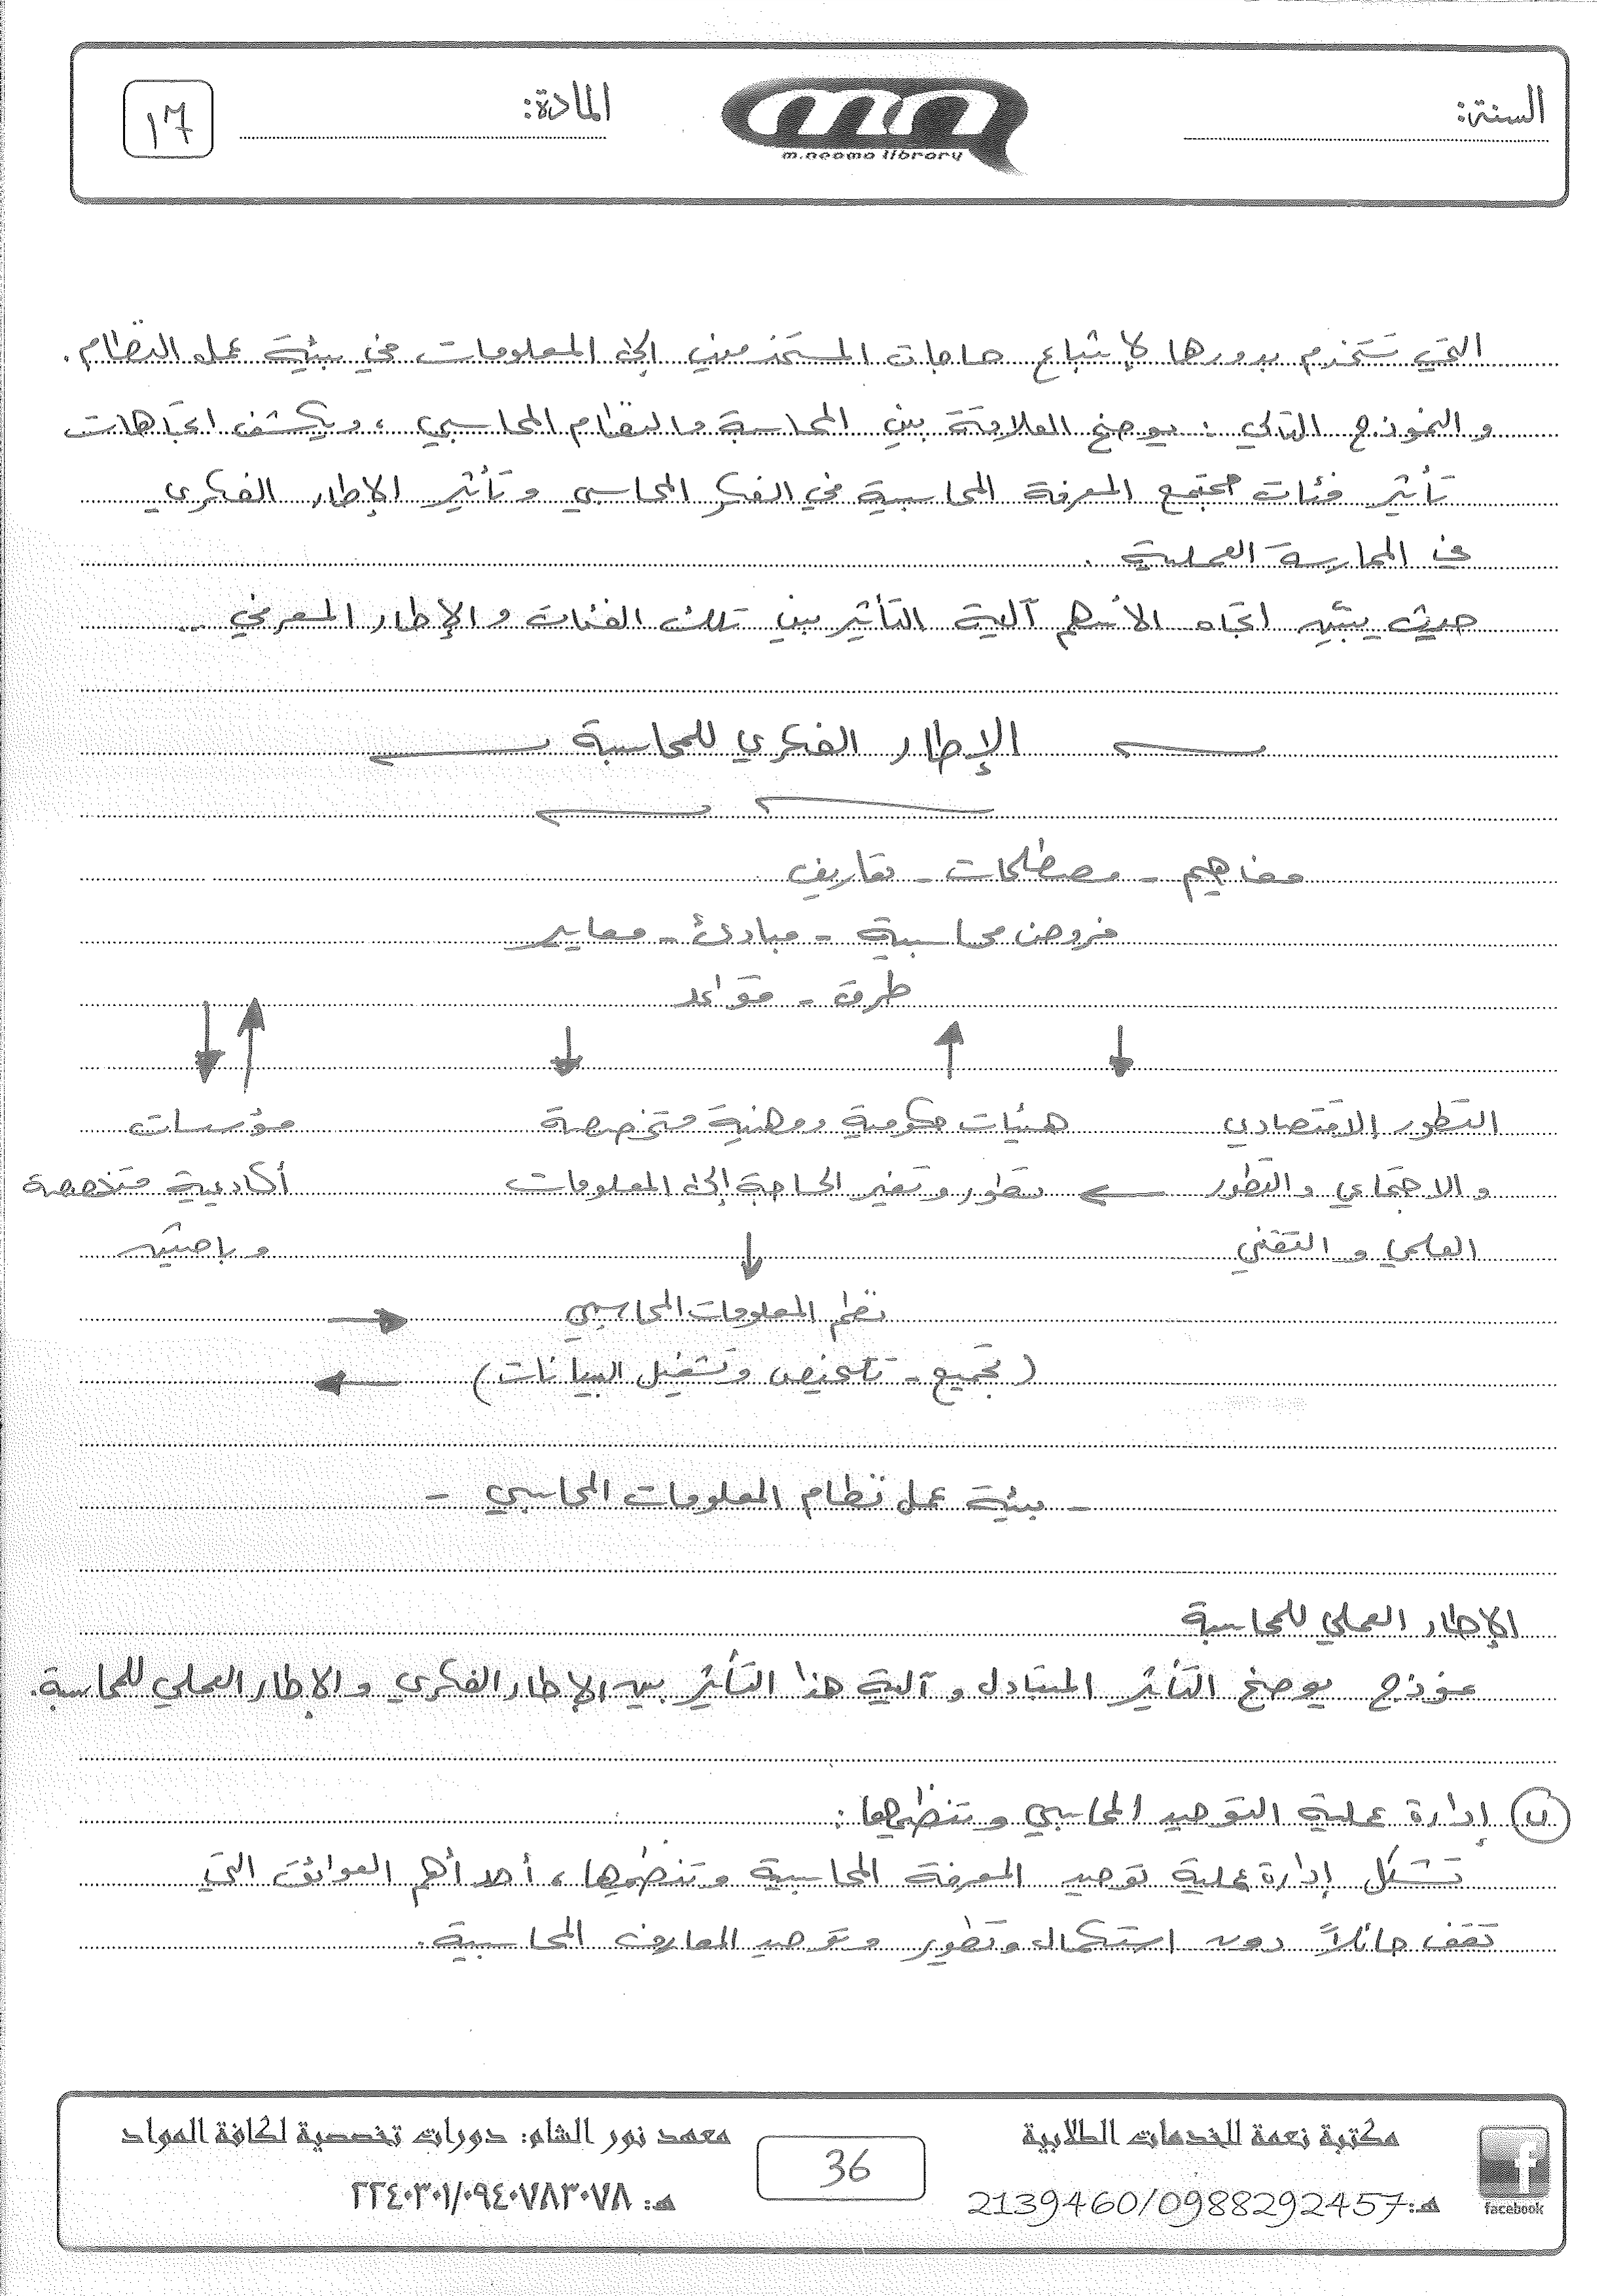 السنة:
m.neama library
المادة:
١٦
التي تستخدم بدورها لإشباع حاجات المستخدمين إلى المعلومات في بيئة عمل النظام.
و النموذج التالي : يوضح العلاقة بين المحاسبة والنظام المحاسبي ، ويكشف اتجاهات
تأثير فئات مجتمع المعرفة المحاسبية في الفكر المحاسبي وتأثير الإطار الفكري
في الممارسة العملية .
حيث يبين اتجاه الأسهم آلية التأثير بين تلك الفئات والإطار المعرفي ..
الإطار الفكري للمحاسبة
مفاهيم - مصطلحات - تعاريف
فروض محاسبية - مبادئ - معايير
طرق - قواعد
التطور الاقتصادي هيئات حكومية ومهنية متخصصة مؤسسات
و الاجتماعي والتطور تطور وتغير الحاجة إلى المعلومات أكاديمية متخصصة
العلمي و التقني و باحثين
نظم المعلومات المحاسبي
( تجميع - تلخيص وتشغيل البيانات )
- بيئة عمل نظام المعلومات المحاسبي -
الإطار العملي للمحاسبة
نموذج يوضح التأثير المتبادل و آلية هذا التأثير بين الإطار الفكري والإطار العملي للمحاسبة.
ب إدارة عملية التوحيد المحاسبي وتنظيمها :
تشكل إدارة عملية توحيد المعرفة المحاسبية وتنظيمها ، أحد أهم العوائق التي
تقف حائلاً دون استكمال وتطوير وتوحيد المعارف المحاسبية .
مكتبة نعمة للخدمات الطلابية
هـ: 2139460/0988292457
facebook
36
معهد نور الشام: دورات تخصصية لكافة المواد
هـ: ٢٢٤٠٣٠١/٠٩٤٠٧٨٣٠٧٨